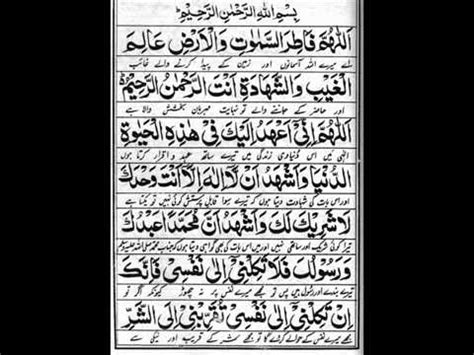 بِسْمِ اللهِ الرَّحْمٰنِ الرَّحِیْمِ
اَللّٰهُمَّ فَاطِرَ السَّمٰوٰتِ وَالْاَرْضِ عَالِمَ
اے میرے اللہ آسمانوں اور زمین کے پیدا کرنے والے غائب
الْغَیْبِ وَالشَّهَادَةِ اَنْتَ الرَّحْمٰنُ الرَّحِیْمُ
اور حاضر کے جاننے والے تو نہایت مہربان بخشش والا ہے
اَللّٰهُمَّ اِنِّیْ اَعْهَدُ اِلَیْكَ فِیْ هٰذِهِ الْحَیٰوةِ
الٰہی میں اس دنیاوی زندگی میں تیرے ساتھ عہد و اقرار کرتا ہوں
الدُّنْیَا وَاَشْهَدُ اَنْ لَّا اِلٰهَ اِلَّا اَنْتَ وَحْدَكَ
اور اس بات کی شہادت دیتا ہوں کہ تیرے سوا قابل پرستش کوئی نہیں تو یکتا ہے
لَا شَرِیْكَ لَكَ وَاَشْهَدُ اَنَّ مُحَمَّدًا عَبْدُكَ
تیرا کوئی شریک اور ساتھی نہیں اور میں اس بات کی بھی گواہی دیتا ہوں کہ جناب محمد صلی اللہ علیہ وسلم
وَرَسُوْلُكَ فَلَا تَكِلْنِیْ اِلٰی نَفْسِیْ فَاِنَّكَ
تیرے بندے اور رسول ہیں پس تو مجھے میرے نفس پر نہ چھوڑ کیونکہ اگر تو
اِنْ تَكِلْنِیْ اِلٰی نَفْسِیْ تُقَرِّبْنِیْ اِلَی الشَّرِّ
مجھے میرے نفس کے حوالے کر دے گا تو مجھے شر کے قریب اور نیکی سے